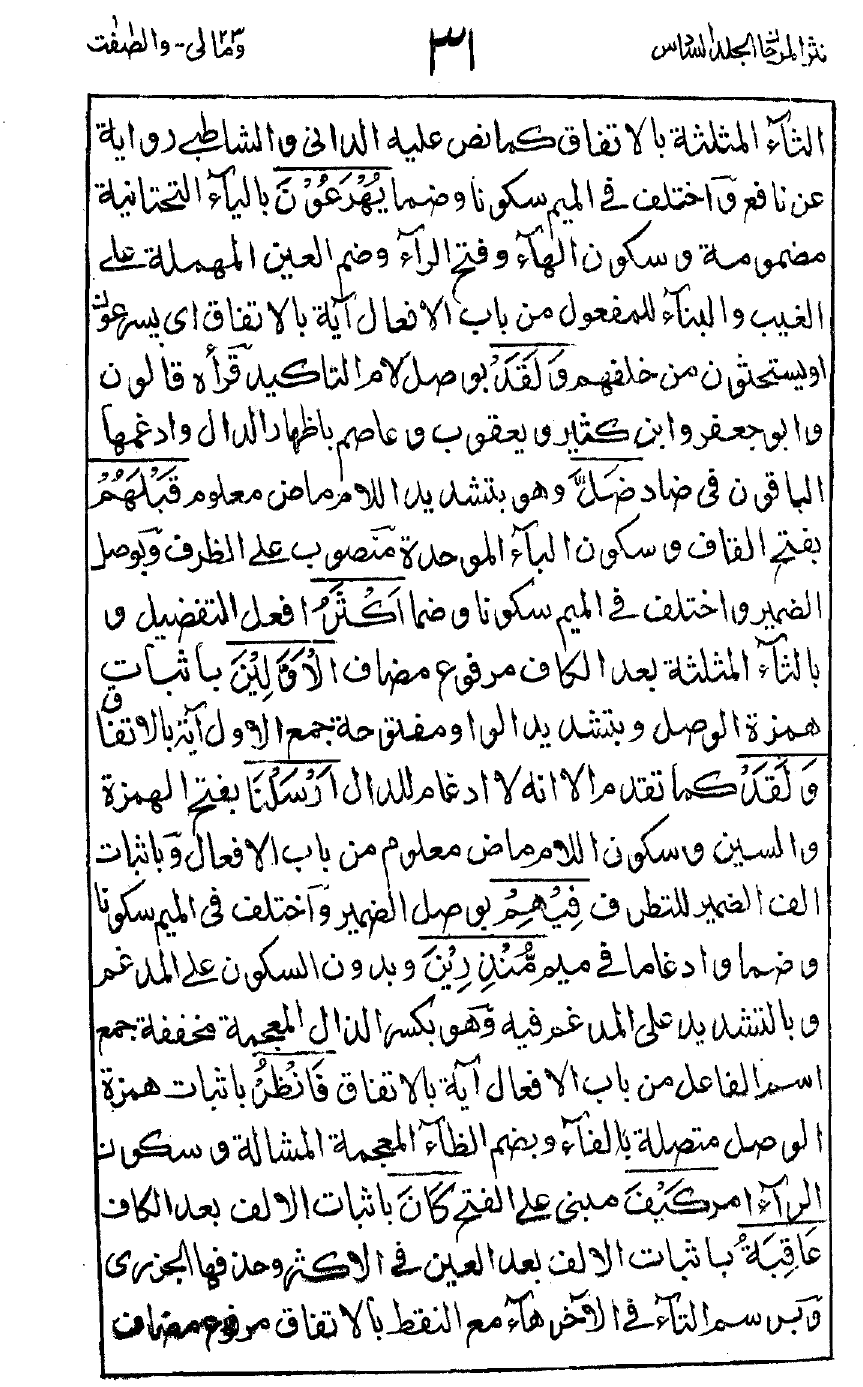 نثر المرجان المجلد السادس ٣١ ومالى ٢٣ - والصٰفٰت
الثآء المثلثة بالاتفاق كما نص عليه الدانى والشاطبے رواية
عن نافع وٓاختلف فے الميم سكونا وضما يُهْرَعُوْنَ باليآء التحتانية
مضمومة وسكون الهآء وفتح الرآء وضم العين المهملة علے
الغيب والبنآء للمفعول من باب الافعال آية بالاتفاق اى يسرعون
او يستحثون من خلفهم وَلَقَدْ بوصل لام التاكيد قرأه قالون
وابو جعفر وابن كثير ويعقوب وعاصم باظهار الدال وادغمها
الباقون فى ضاد ضَلَّ وهو بتشديد اللام ماض معلوم قَبْلَهُمْ
بفتح القاف وسكون البآء الموحدة منصوب على الظرف وٓبوصل
الضمير واختلف فے الميم سكونا وضما اَكْثَرُ افعل التفضيل و
بالثآء المثلثة بعد الكاف مرفوع مضاف الْاَوَّلِيْنَ باثبات
همزة الوصل وبتشديد الواو مفتوحة جمع الاول آية بالاتفاق
وَلَقَدْ كما تقدم الا انه لا ادغام للدال اَرْسَلْنَا بفتح الهمزة
والسين وسكون اللام ماض معلوم من باب الافعال وٓباثبات
الف الضمير للتطرف فِيْهِمْ بوصل الضمير وٓاختلف فى الميم سكونا
وضما وادغاما فے ميم مُّنْذِرِيْنَ وبدون السكون على المدغم
وبالتشديد على المدغم فيه وٓهو بكسر الذال المعجمة مخففة جمع
اسم الفاعل من باب الافعال آية بالاتفاق فَانْظُرْ باثبات همزة
الوصل متصلة بالفآء وبضم الظآء المعجمة المشالة وسكون
الرآء امر كَيْفَ مبنى علے الفتح كَانَ باثبات الالف بعد الكاف
عَاقِبَةُ باثبات الالف بعد العين فے الاكثر وحذفها الجزرى
وٓبرسم التآء فے الآخر هآء مع النقط بالاتفاق مرفوع مضاف